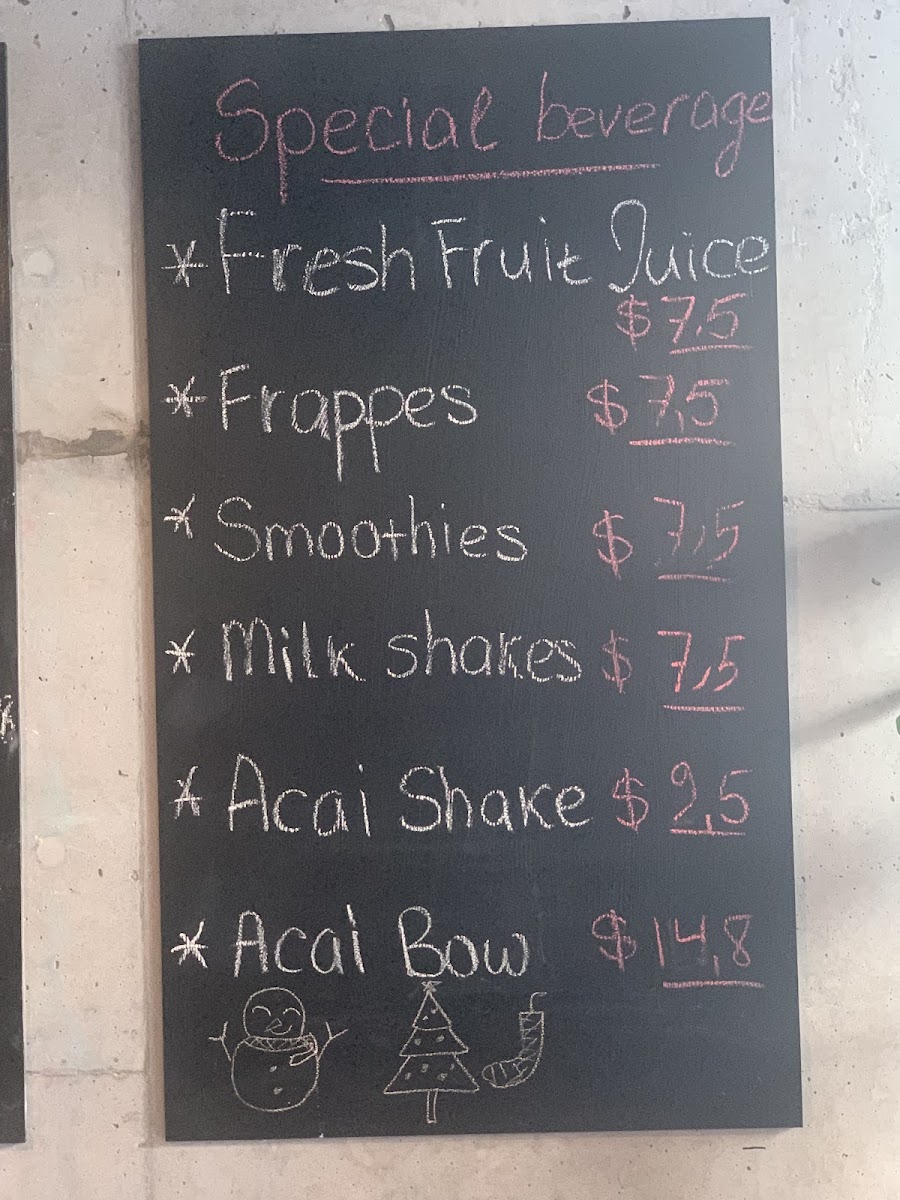 Special beverage
* Fresh Fruit Juice
$7.5
* Frappes $7,5
* Smoothies $7,5
* Milk shakes $7,5
* Acai Shake $9,5
* Acai Bow $14,8